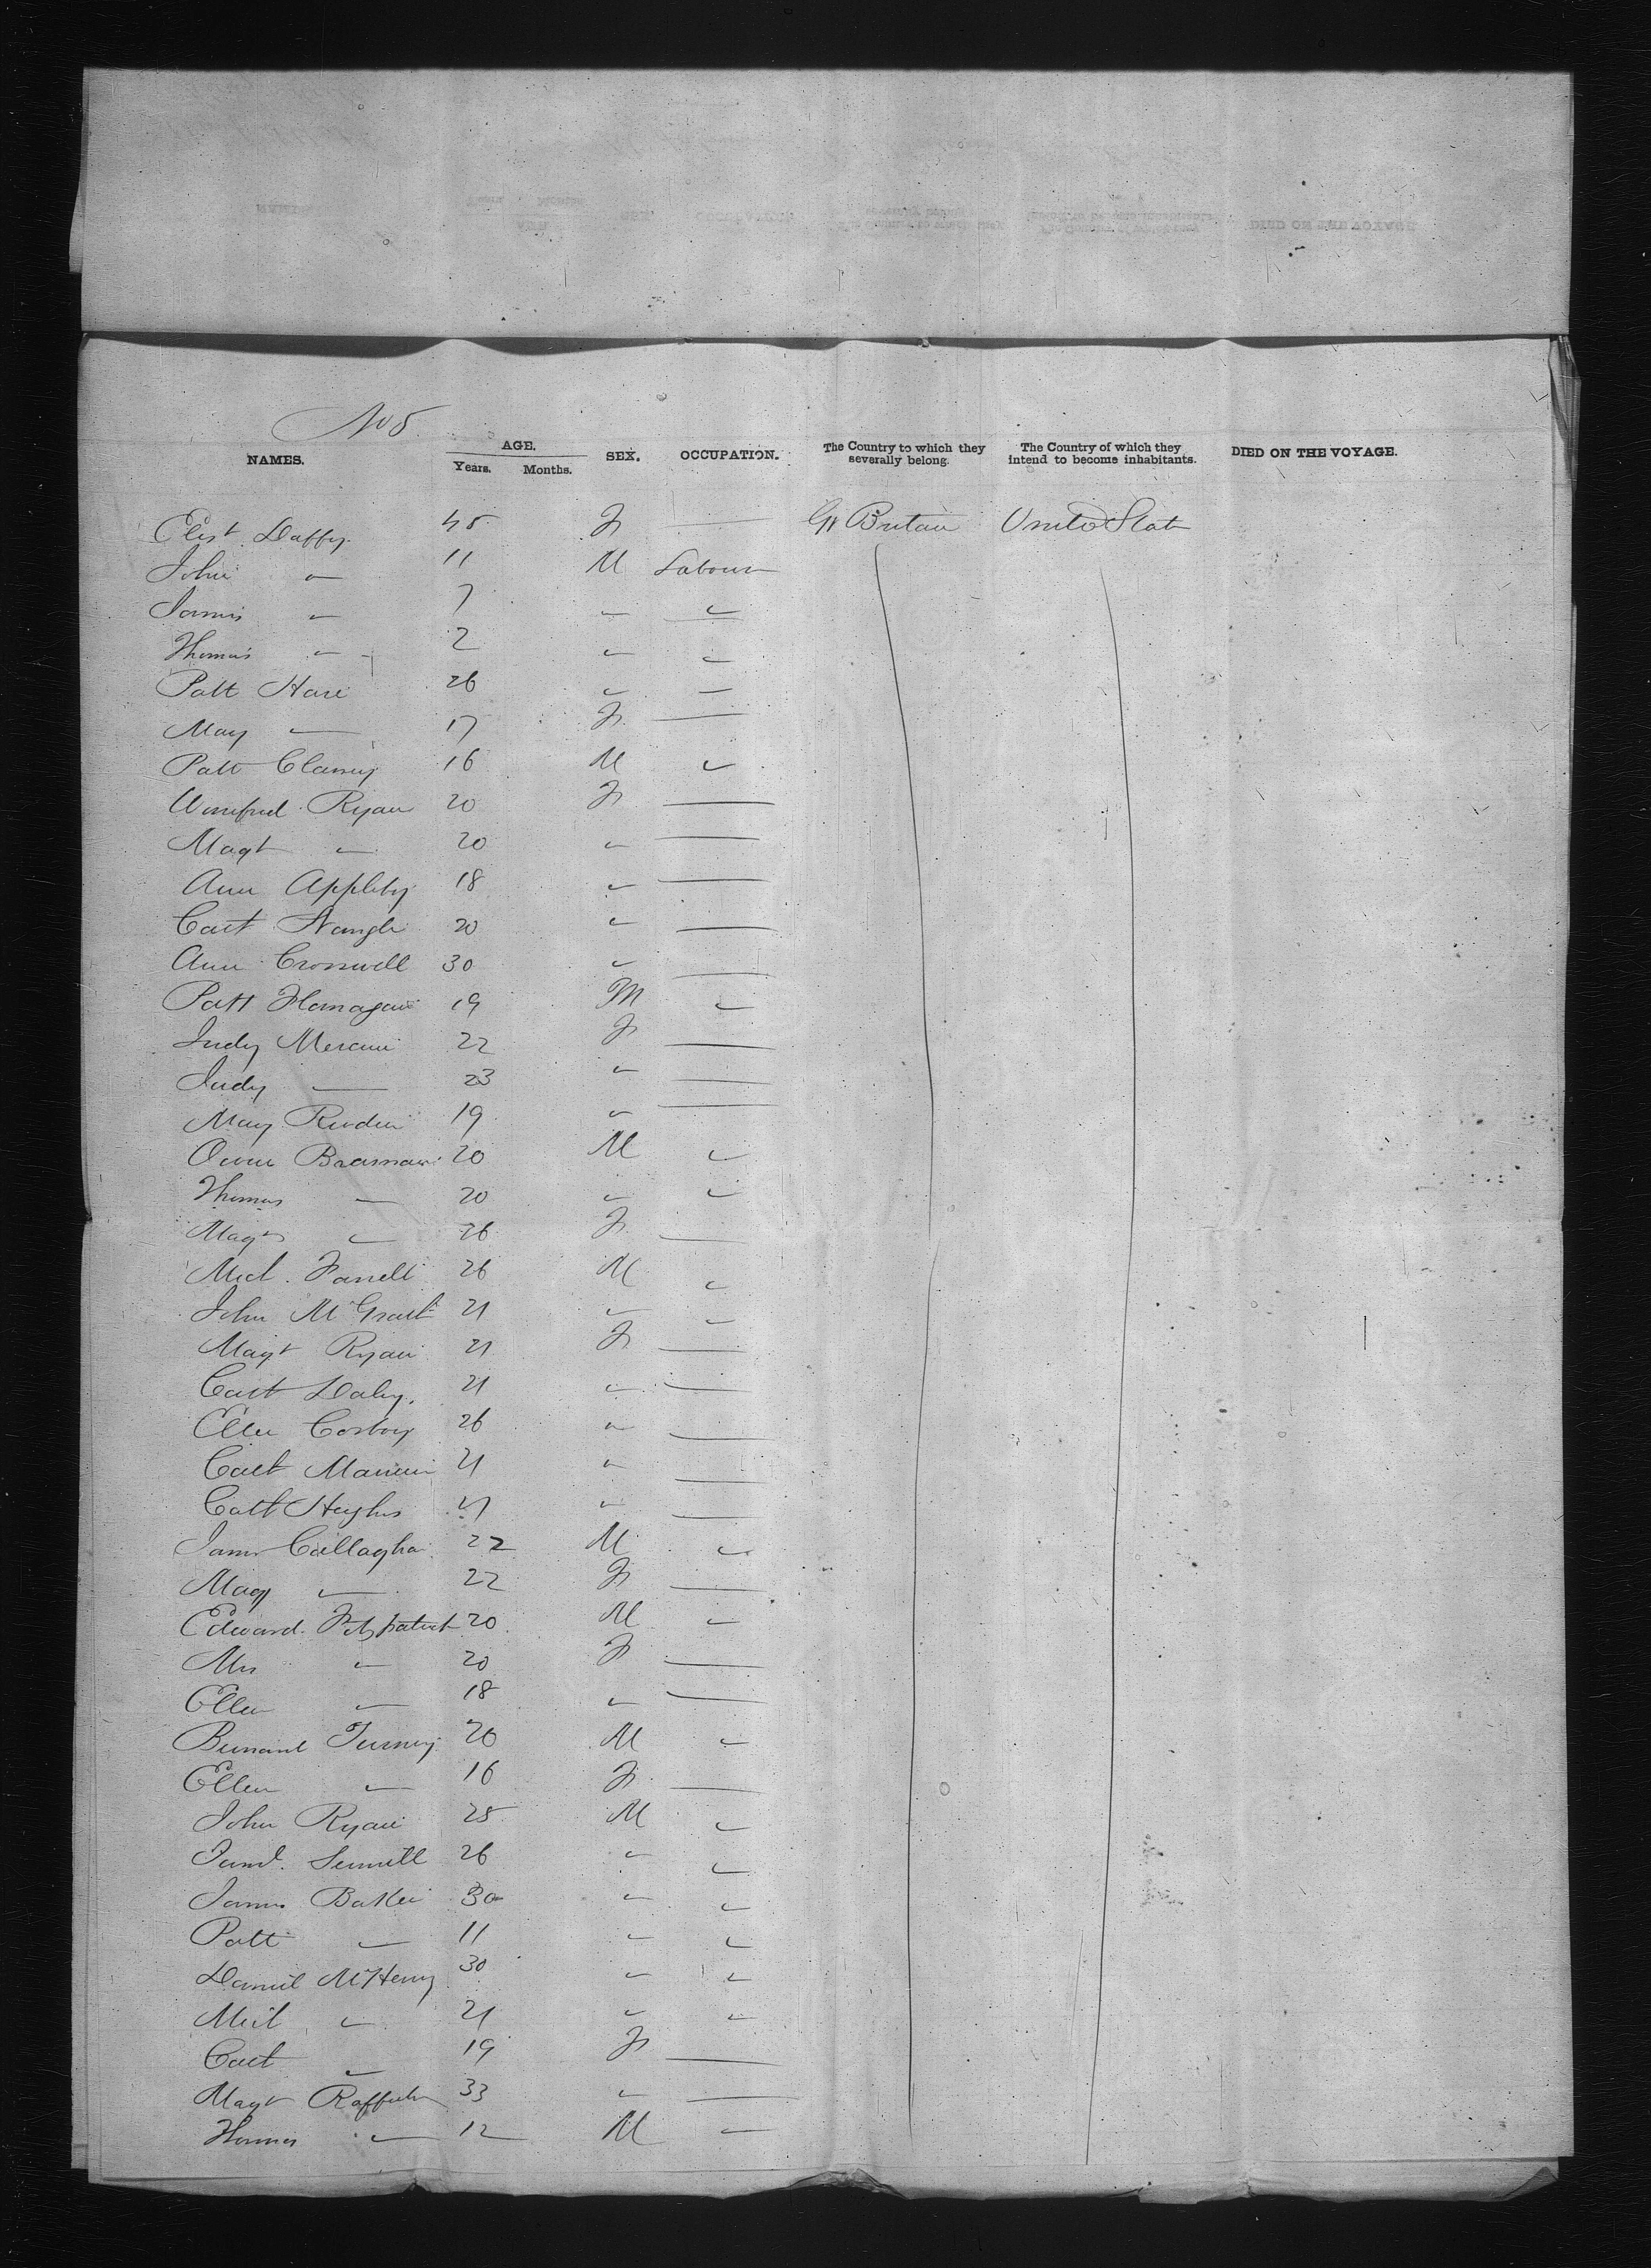 No 5
NAMES. AGE. Years. Months. SEX. OCCUPATION. The Country to which they severally belong. The Country of which they intend to become inhabitants. DIED ON THE VOYAGE.
Elist Daffy 45 F — Gt Britain United Stat
John " 11 M Labour
James " 7 " "
Thomas " 2 " "
Patt Hare 26 " —
May — 17 F —
Patt Clancy 16 M "
Winifred Ryan 20 F —
Magt " 20 " —
Ann Appleby 18 " —
Cact Nangle 20 " —
Ann Cromwell 30 " —
Patt Flanagan 19 M "
Judy 22 F —
Judy — 23 " —
May 19 " —
Owen 20 M "
Thomas — 20 " "
Magt " 26 F —
Mich. Farrell 26 M "
John McGrath 21 " "
Magt Ryan 21 F —
Cact Daly. 21 " —
Ellen Corboy 26 " —
Cact 21 " —
Catt Hughes 21 " —
James Callaghan 22 M "
Magt — 22 F —
Edward Fitzpatrick 20 M "
Mrs " 20 F —
Ellen " 18 " —
Bernard 20 M "
Ellen " 16 F —
John Ryan 25 M "
26 " "
James 30 " "
Patt " 11 " "
Daniel McHenry 30 " "
Mich " 21 " "
Cact " 19 F —
Magt 33 " —
Thomas " 12 M "